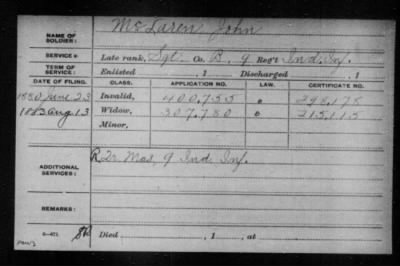 NAME OF SOLDIER: McLaren John
SERVICE: Late rank, Sgt. Co. B, 9 Reg't Ind. Inf.
TERM OF SERVICE: Enlisted , 1 Discharged , 1
DATE OF FILING. CLASS. APPLICATION NO. LAW. CERTIFICATE NO.
1880 June 23 Invalid, 400,755 298,178
Aug 13 Widow, 307,780 215,115
Minor,
ADDITIONAL SERVICES: 9 Ind Inf.
REMARKS:
Died , 1 , at